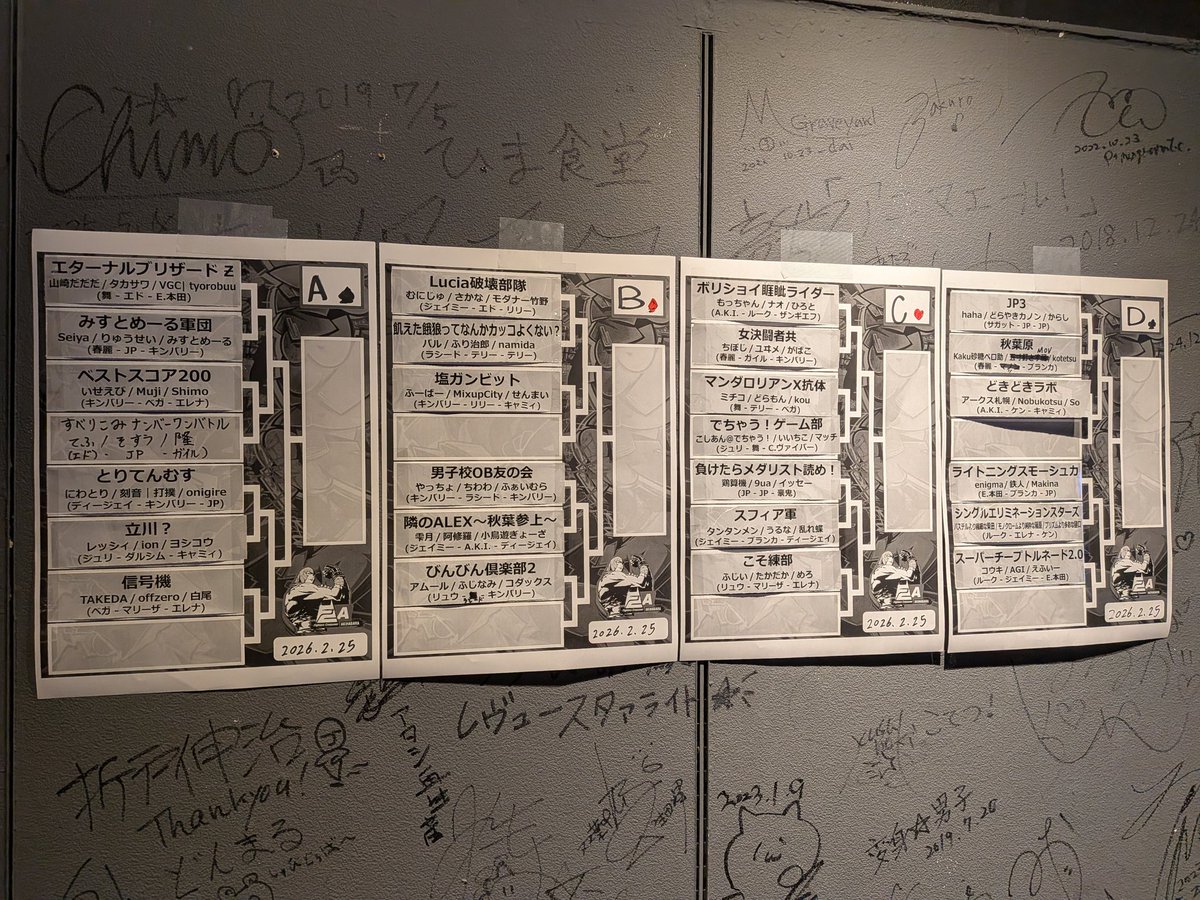 Chimo
2019 7/5
ひま食堂
M
Graveyard
2022.10.23
「アニマエール!」
2018.12.2
エターナルブリザード Z
山崎だだだ / タカサワ / VGC| tyorobuu
(舞 - エド - E.本田)
みすとめーる軍団
Seiya / りゅうせい / みすとめーる
(春麗 - JP - キンバリー)
ベストスコア200
いせえび / Muji / Shimo
(キンバリー - ベガ - エレナ)
すべりこみナンバーワンバトル
てふ / きずう / 隆
(エド) - JP - ガイル)
とりてんむす
にわとり / 刻音 | 打撲 / onigire
(ディージェイ - キンバリー - JP)
立川?
レッシィ / ion / ヨシコウ
(ジュリ - ダルシム - キャミィ)
信号機
TAKEDA / offzero / 白尾
(ベガ - マリーザ - エレナ)
A♠
2026.2.25
Lucia破壊部隊
むにじゅ / さかな / モダナー竹野
(ジェイミー - エド - リリー)
飢えた餓狼ってなんかカッコよくない?
バル / ふり治郎 / namida
(ラシード - テリー - テリー)
塩ガンビット
ふーばー / MixupCity / せんまい
(キンバリー - リリー - キャミィ)
男子校OB友の会
やっちょ / ちわわ / ふぁいむら
(キンバリー - ラシード - キンバリー)
隣のALEX～秋葉参上～
雫月 / 阿修羅 / 小鳥遊ぎょーざ
(ジェイミー - A.K.I. - ディージェイ)
びんびん倶楽部2
アムール / ふじなみ / コダックス
(リュウ - キンバリー)
B♦
2026.2.25
ボリショイ睚眦ライダー
もっちゃん / ナオ / ひろと
(A.K.I. - ルーク - ザンギエフ)
女決闘者共
ちぼじ / ユヰメ / がばこ
(春麗 - ガイル - キンバリー)
マンダロリアンX抗体
ミチコ / どらもん / kou
(舞 - テリー - ベガ)
でちゃう!ゲーム部
こしあん@でちゃう! / いいちこ / マッチ
(ジュリ - 舞 - C.ヴァイパー)
負けたらメダリスト読め!
鶏算機 / 9ua / イッセー
(JP - JP - 豪鬼)
スフィア軍
タンタンメン / うるな / 乱れ蝶
(ジェイミー - ブランカ - ディージェイ)
こそ練部
ふじい / たかだか / めろ
(リュウ - マリーザ - エレナ)
C♥
2026.2.25
JP3
haha / どらやきカノン / からし
(サガット - JP - JP)
秋葉原
MOV
Kaku砂糖ベロ助 / kotetsu
(春麗 - ブランカ)
どきどきラボ
アークス札幌 / Nobukotsu / So
(A.K.I. - ケン - キャミィ)
ライトニングスモーシュカ
enigma / 鉄人 / Makina
(E.本田 - ブランカ - JP)
シングルエリミネーションスターズ
(ルーク - エレナ - ケン)
スーパーチープトルネード2.0
コウキ / AGI / えふいー
(ルーク - ジェイミー - E.本田)
D♠
2026.2.25
レヴュースタァライト
Thankyou!
どんまる
こてつ!
2023.1.9
変身☆男子
2019.7.20